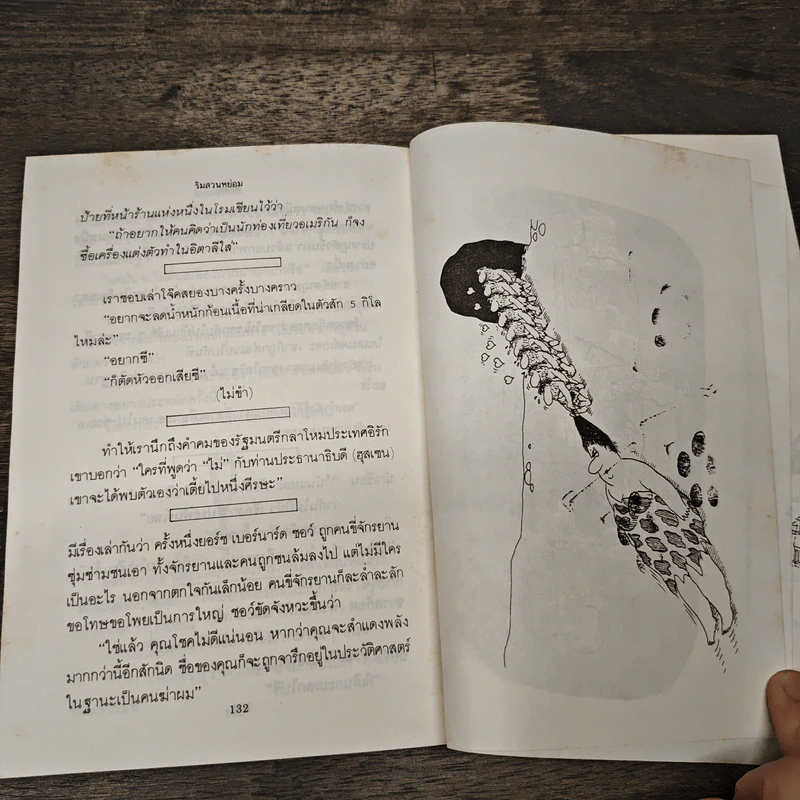 ริมสวนหย่อม
ป้ายที่หน้าร้านแห่งหนึ่งในโรมเขียนไว้ว่า
“ถ้าอยากให้คนคิดว่าเป็นนักท่องเที่ยวอเมริกัน ก็จง
ซื้อเครื่องแต่งตัวทำในอิตาลีใส่”
เราชอบเล่าโจ๊คสยองบางครั้งบางคราว
“อยากจะลดน้ำหนักก้อนเนื้อที่น่าเกลียดในตัวสัก 5 กิโล
ไหมล่ะ”
“อยากซี”
“ก็ตัดหัวออกเสียซี”
(ไม่ขำ)
ทำให้เรานึกถึงคำคมของรัฐมนตรีกลาโหมประเทศอิรัก
เขาบอกว่า “ใครที่พูดว่า “ไม่” กับท่านประธานาธิบดี (ฮุสเซน)
เขาจะได้พบตัวเองว่าเตี้ยไปหนึ่งศีรษะ”
มีเรื่องเล่ากันว่า ครั้งหนึ่งยอร์ช เบอร์นาร์ด ชอว์ ถูกคนขี่จักรยาน
ซุ่มซ่ามชนเอา ทั้งจักรยานและคนถูกชนล้มลงไป แต่ไม่มีใคร
เป็นอะไร นอกจากตกใจกันเล็กน้อย คนขี่จักรยานก็ละล่ำละลัก
ขอโทษขอโพยเป็นการใหญ่ ชอว์ขัดจังหวะขึ้นว่า
“ใช่แล้ว คุณโชคไม่ดีแน่นอน หากว่าคุณจะสำแดงพลัง
มากกว่านี้อีกสักนิด ชื่อของคุณก็จะถูกจารึกอยู่ในประวัติศาสตร์
ในฐานะเป็นคนฆ่าผม”
132